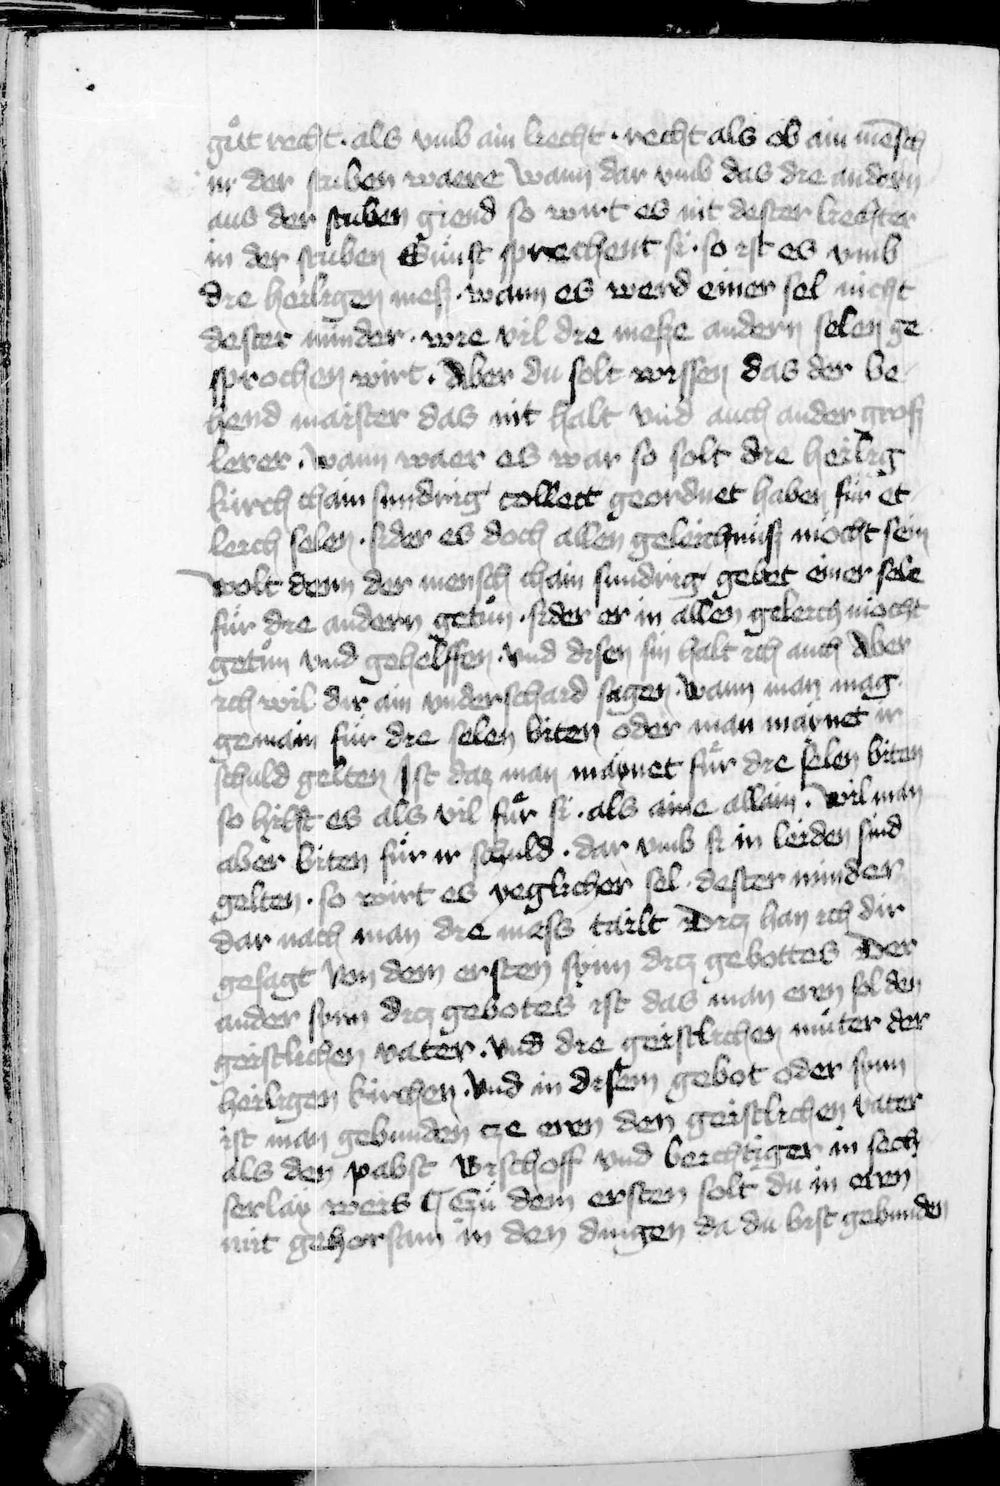 guͦt recht · als vmb ain liecht · recht als ob ain mēsch
in der stuben waere Wann dar vmb das die andern
aus der stuben giend so wirt es nit dester liechter
in der stuben Suͤnst sprechent si · so ist es vmb
die heiligen mess · wann es werd einer sel nicht
dester minder · wie vil die messe andern selen ge
sprochen wirt · Aber du solt wissen das der be
hend maister das nit halt vnd auch ander gross
lerer · wann waer es war so solt die heilig
kirch chain sundrig collect geordnet haben für et
leich selen · sider es doch allen geleichmiss möcht sein
Wolt denn der mensch chain sundrig gebet einer sele
für die andern getuͦn · sider er in allen geleich möcht
getuͦn vnd gehelffen · vnd disen sin halt ich auch Aber
ich wil dir ain vnderschaid sagen · Wann man mag
gemain für die selen biten oder man mainet ir
schuld gelten Ist daz man mainet fuͤr die selen biten
so hilft es als vil fuͤr si · als aine allain · wil man
aber biten für ir schuld · dar vmb si in leiden sind
gelten · so wirt es yeglicher sel · dester minder
dar nach man die mess tailt Dicz han ich dir
gesagt von dem ersten synn dicz gebottes Der
ander synn dicz gebotes ist das man eren sol den
geistlichen vater · vnd die geistlichen müter der
heiligen kirchen · vnd in disem gebot oder synn
ist man gebunden cze eren den geistlichen vater
als den pabst Bischoff vnd beichtiger in sech
serlay weis ¶ Zü dem ersten solt du in eren
mit gehorsam in den dingen da du bist gebunden